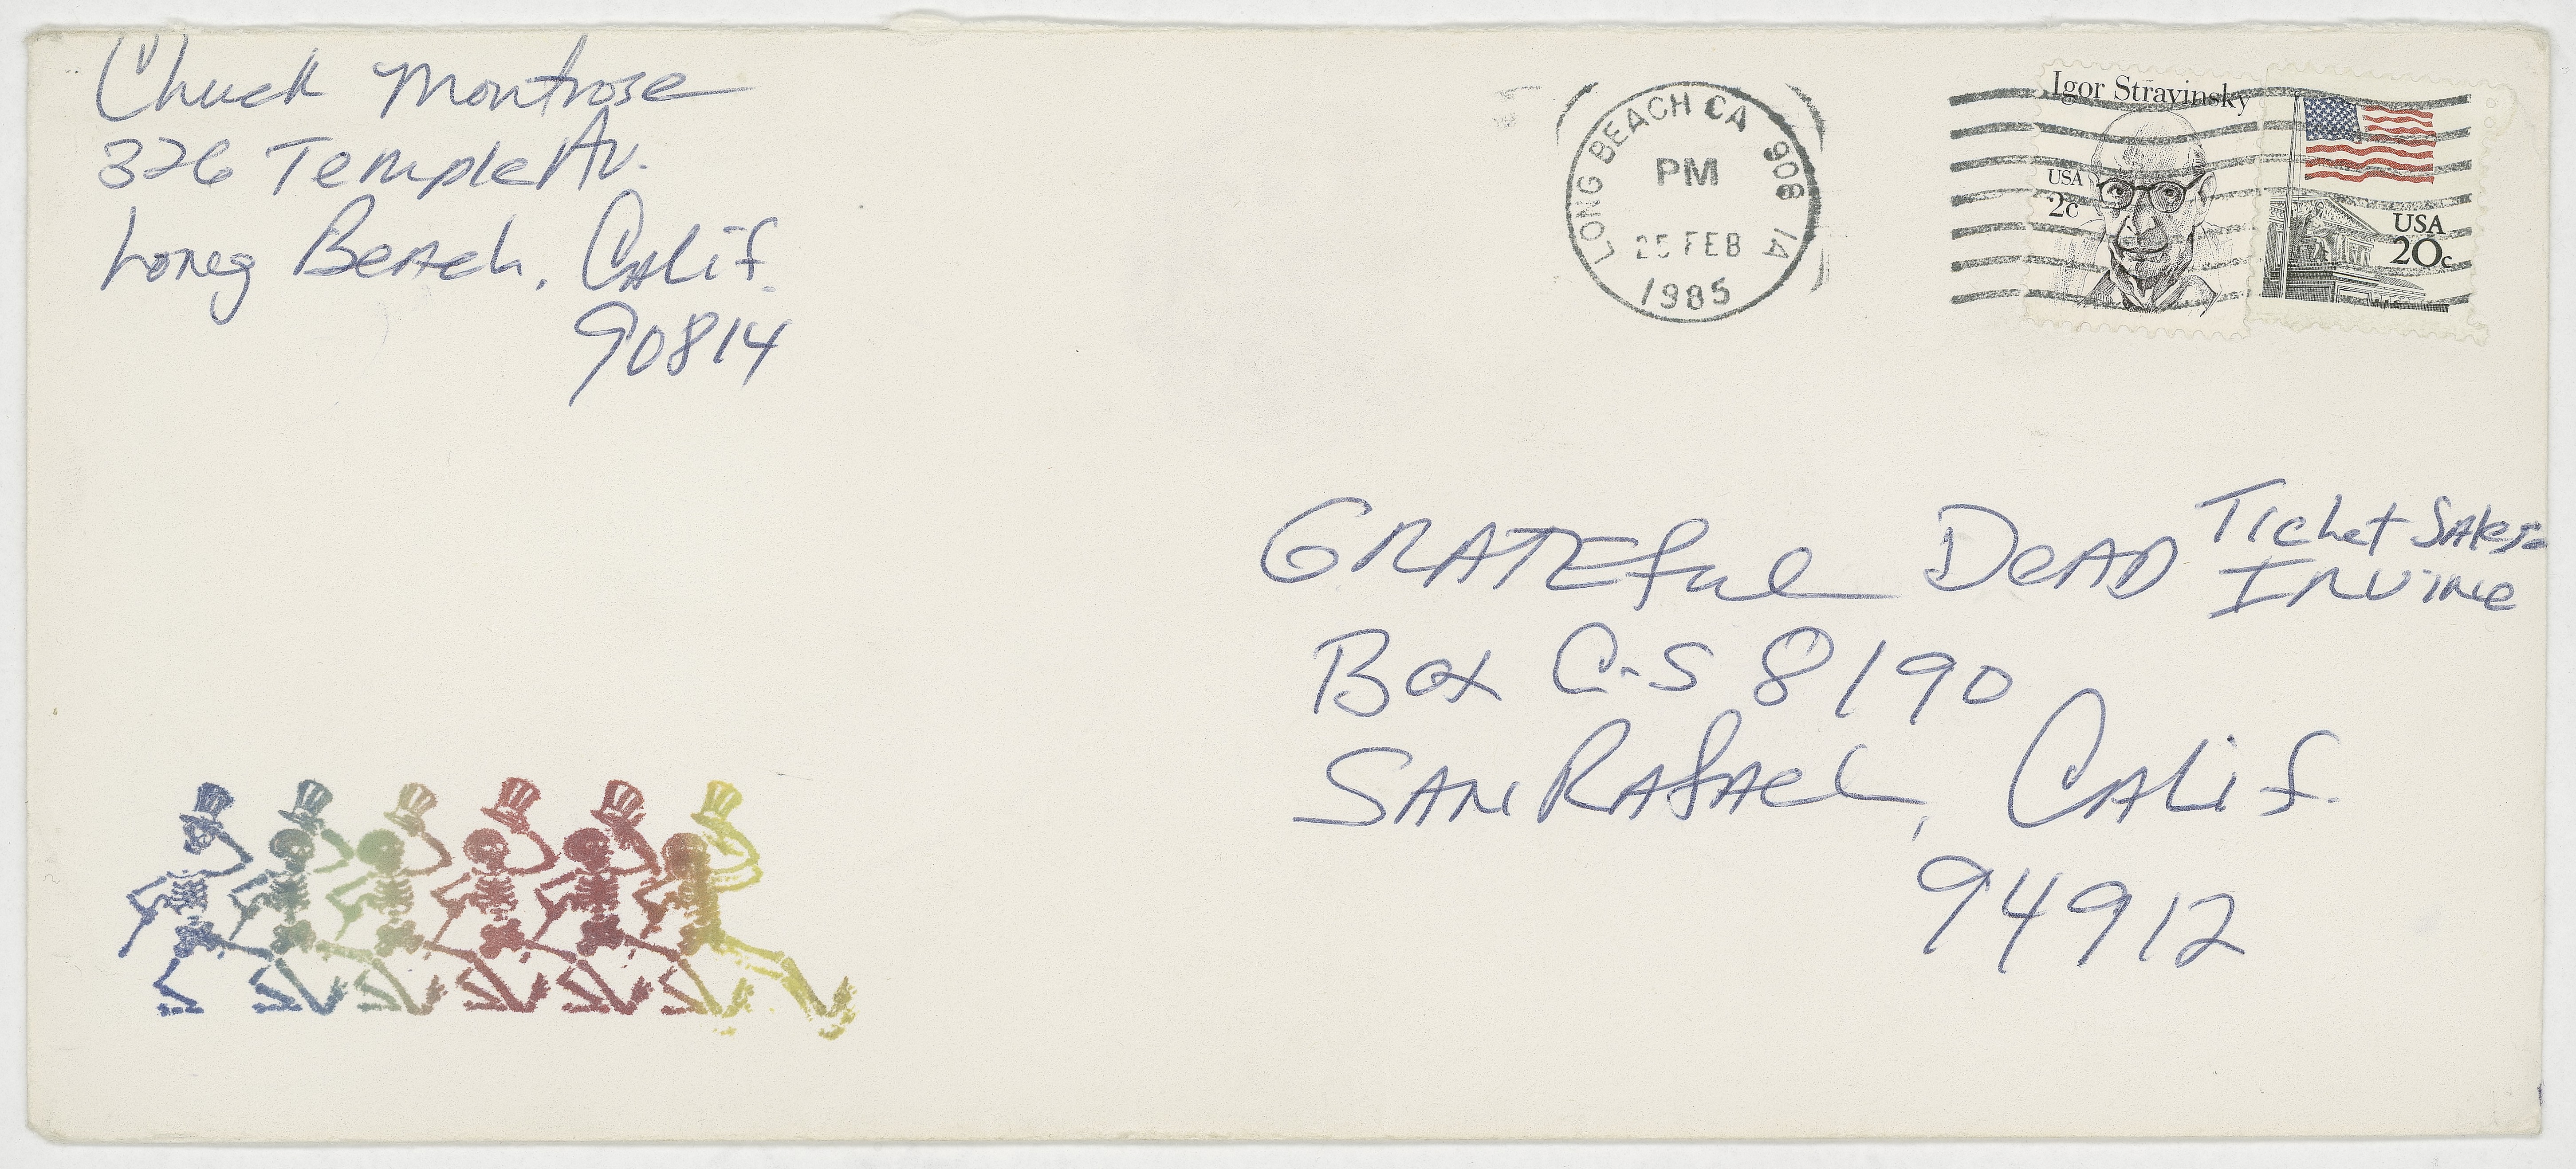 Chuck Montrose
326 Temple Av.
Long Beach, Calif.
90814
LONG BEACH CA 908 14
PM
25 FEB
1985
Igor Stravinsky
USA
2c
USA
20c
GRATEful DeAD Ticket Sales
IRVINe
Box C-S 8190
SAN RAfAeL, CALif.
94912